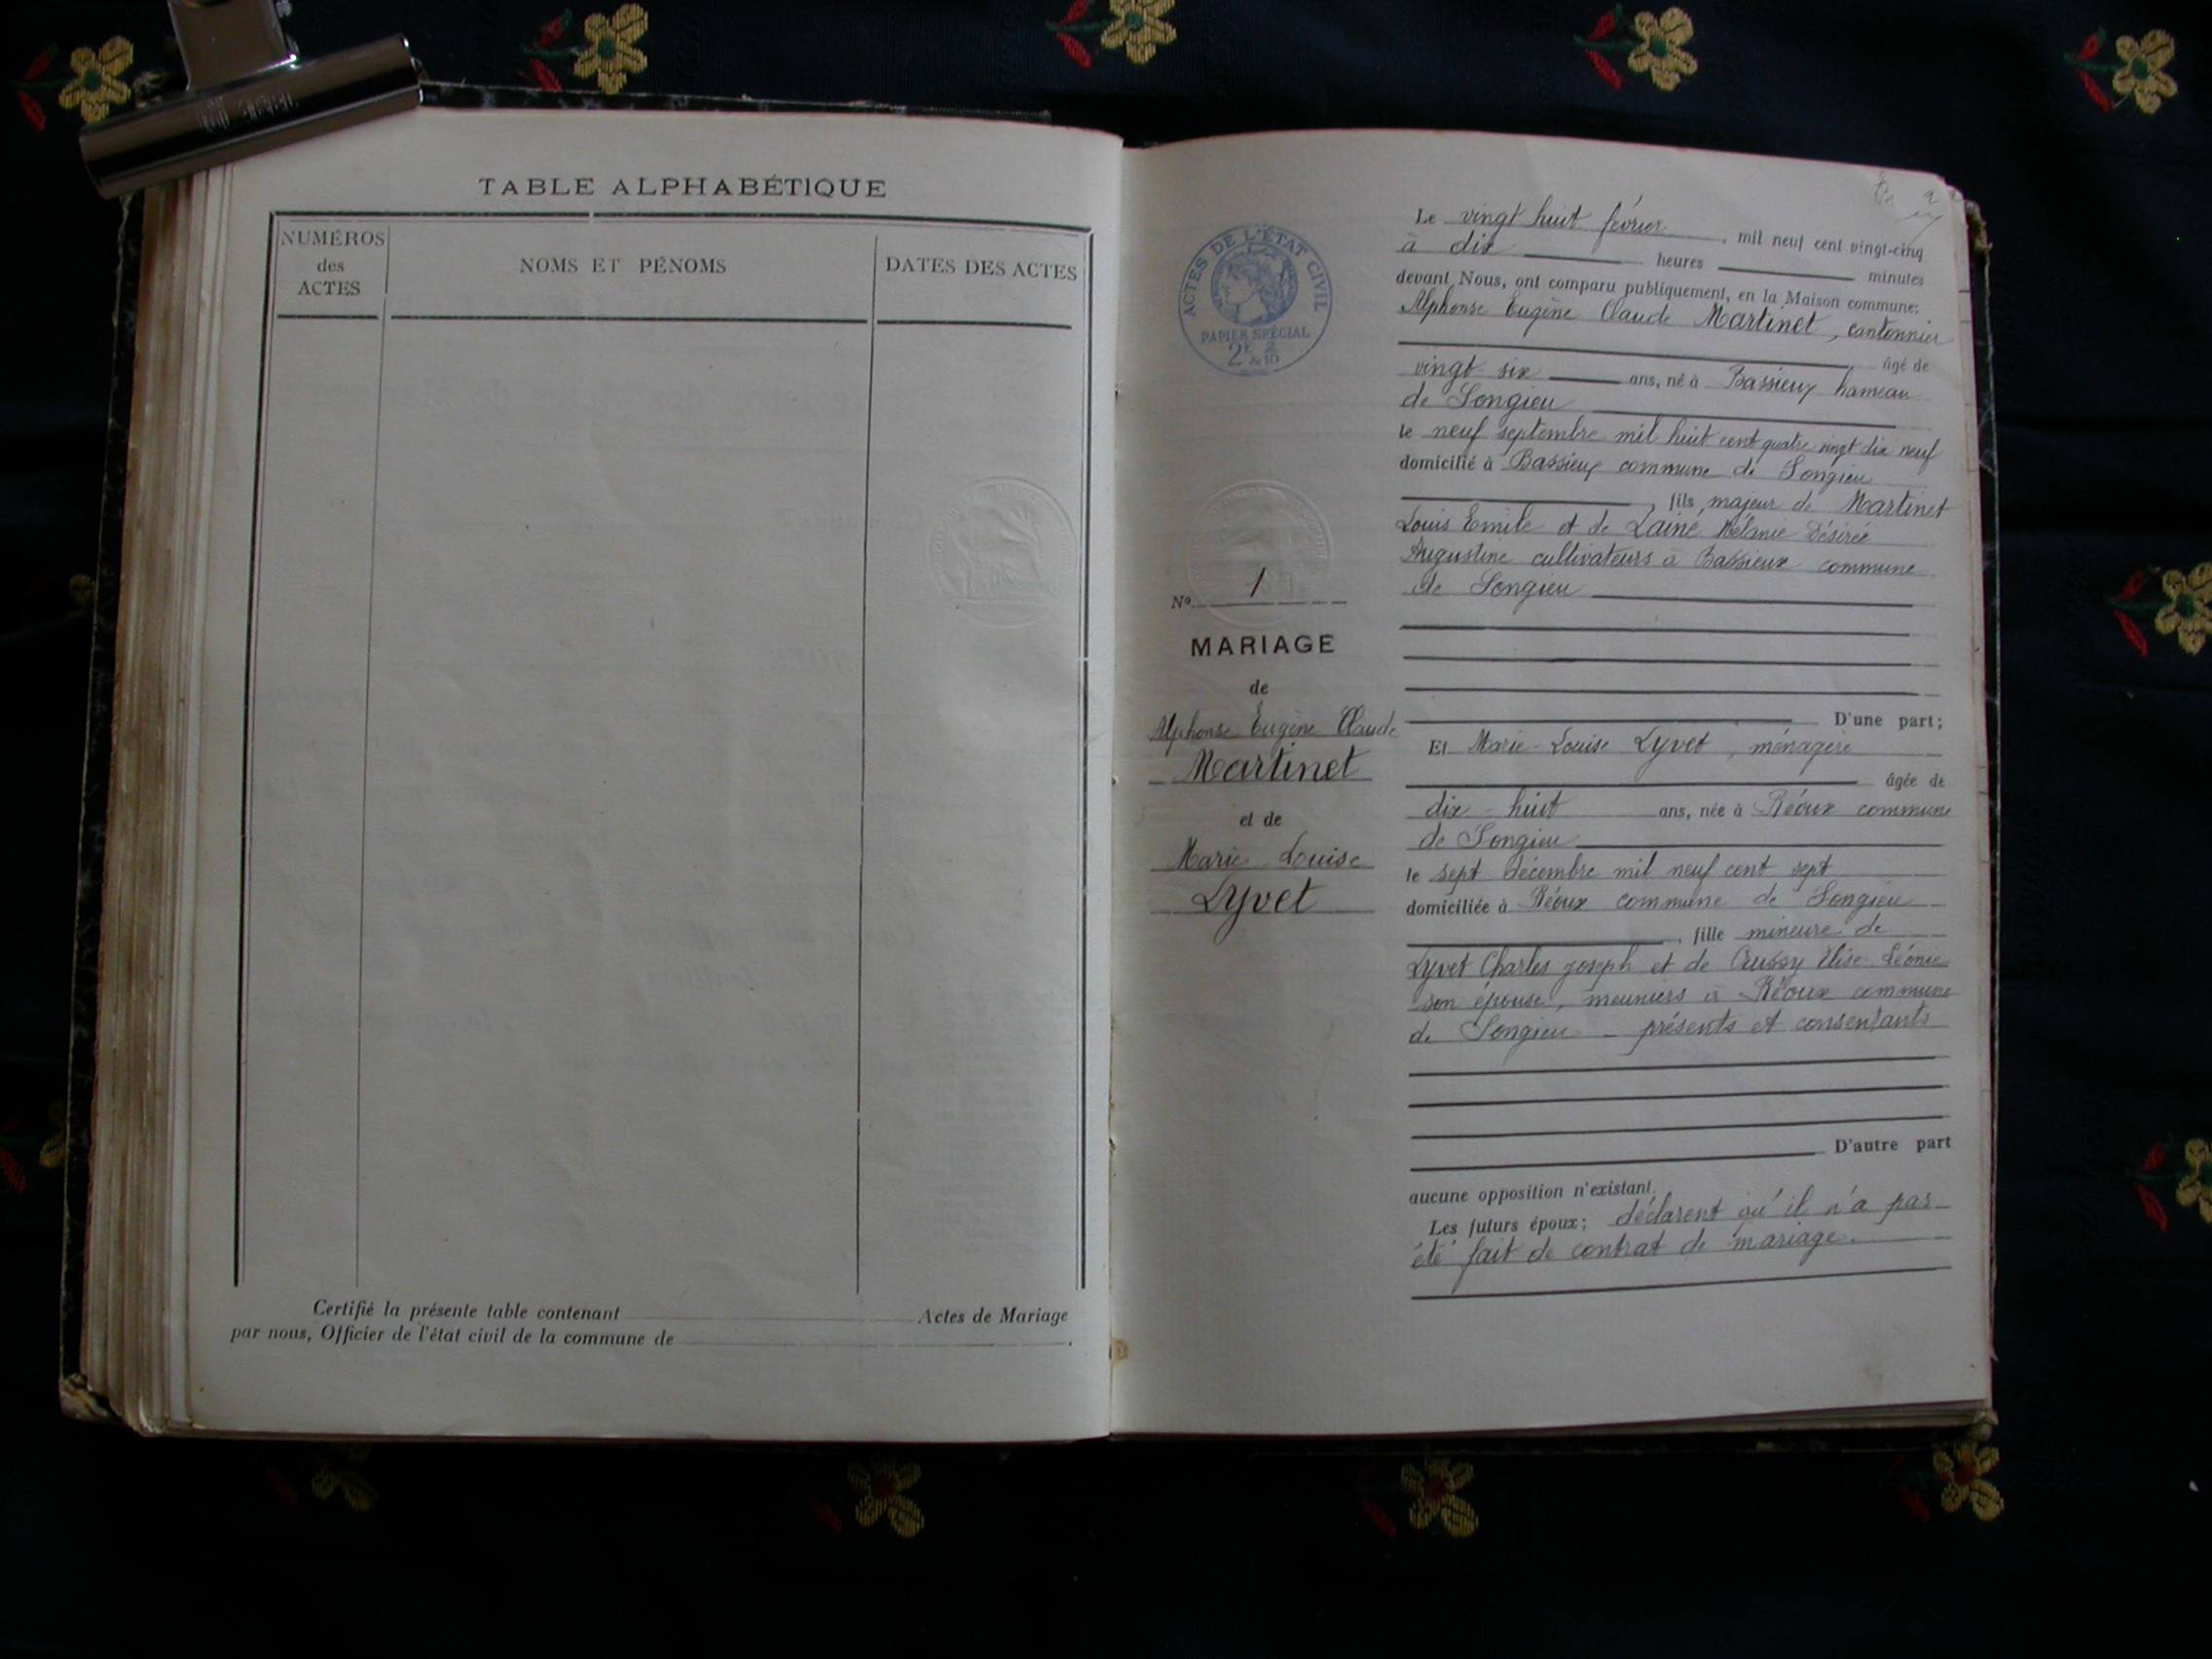 TABLE ALPHABÉTIQUE
NUMÉROS
des
ACTES
NOMS ET PÉNOMS
DATES DES ACTES
Certifié la présente table contenant Actes de Mariage
par nous, Officier de l'état civil de la commune de
ACTES DE L'ÉTAT CIVIL
PAPIER SPÉCIAL
No 1
MARIAGE
de
Alphonse Eugène Claude
Martinet
et de
Marie-Louise
Lyvet
Le vingt huit février, mil neuf cent vingt-cinq
à dix heures minutes
devant Nous, ont comparu publiquement, en la Maison commune:
Alphonse Eugène Claude Martinet, cantonnier
âgé de
vingt six ans, né à Bassieux hameau
de Songieu
le neuf septembre mil huit cent quatre vingt dix neuf
domicilié à Bassieux commune de Songieu
, fils majeur de Martinet
Louis Emile et de Laine Mélanie Désirée
Augustine cultivateurs à Bassieux commune
de Songieu
D'une part;
Et Marie-Louise Lyvet, ménagère
âgée de
dix-huit ans, née à Réoux commune
de Songieu
le sept décembre mil neuf cent sept
domiciliée à Réoux commune de Songieu
, fille mineure de
Lyvet Charles Joseph et de Élise Léonie
son épouse, meuniers à Réoux commune
de Songieu - présents et consentants
D'autre part
aucune opposition n'existant.
Les futurs époux; déclarent qu'il n'a pas
été fait de contrat de mariage.